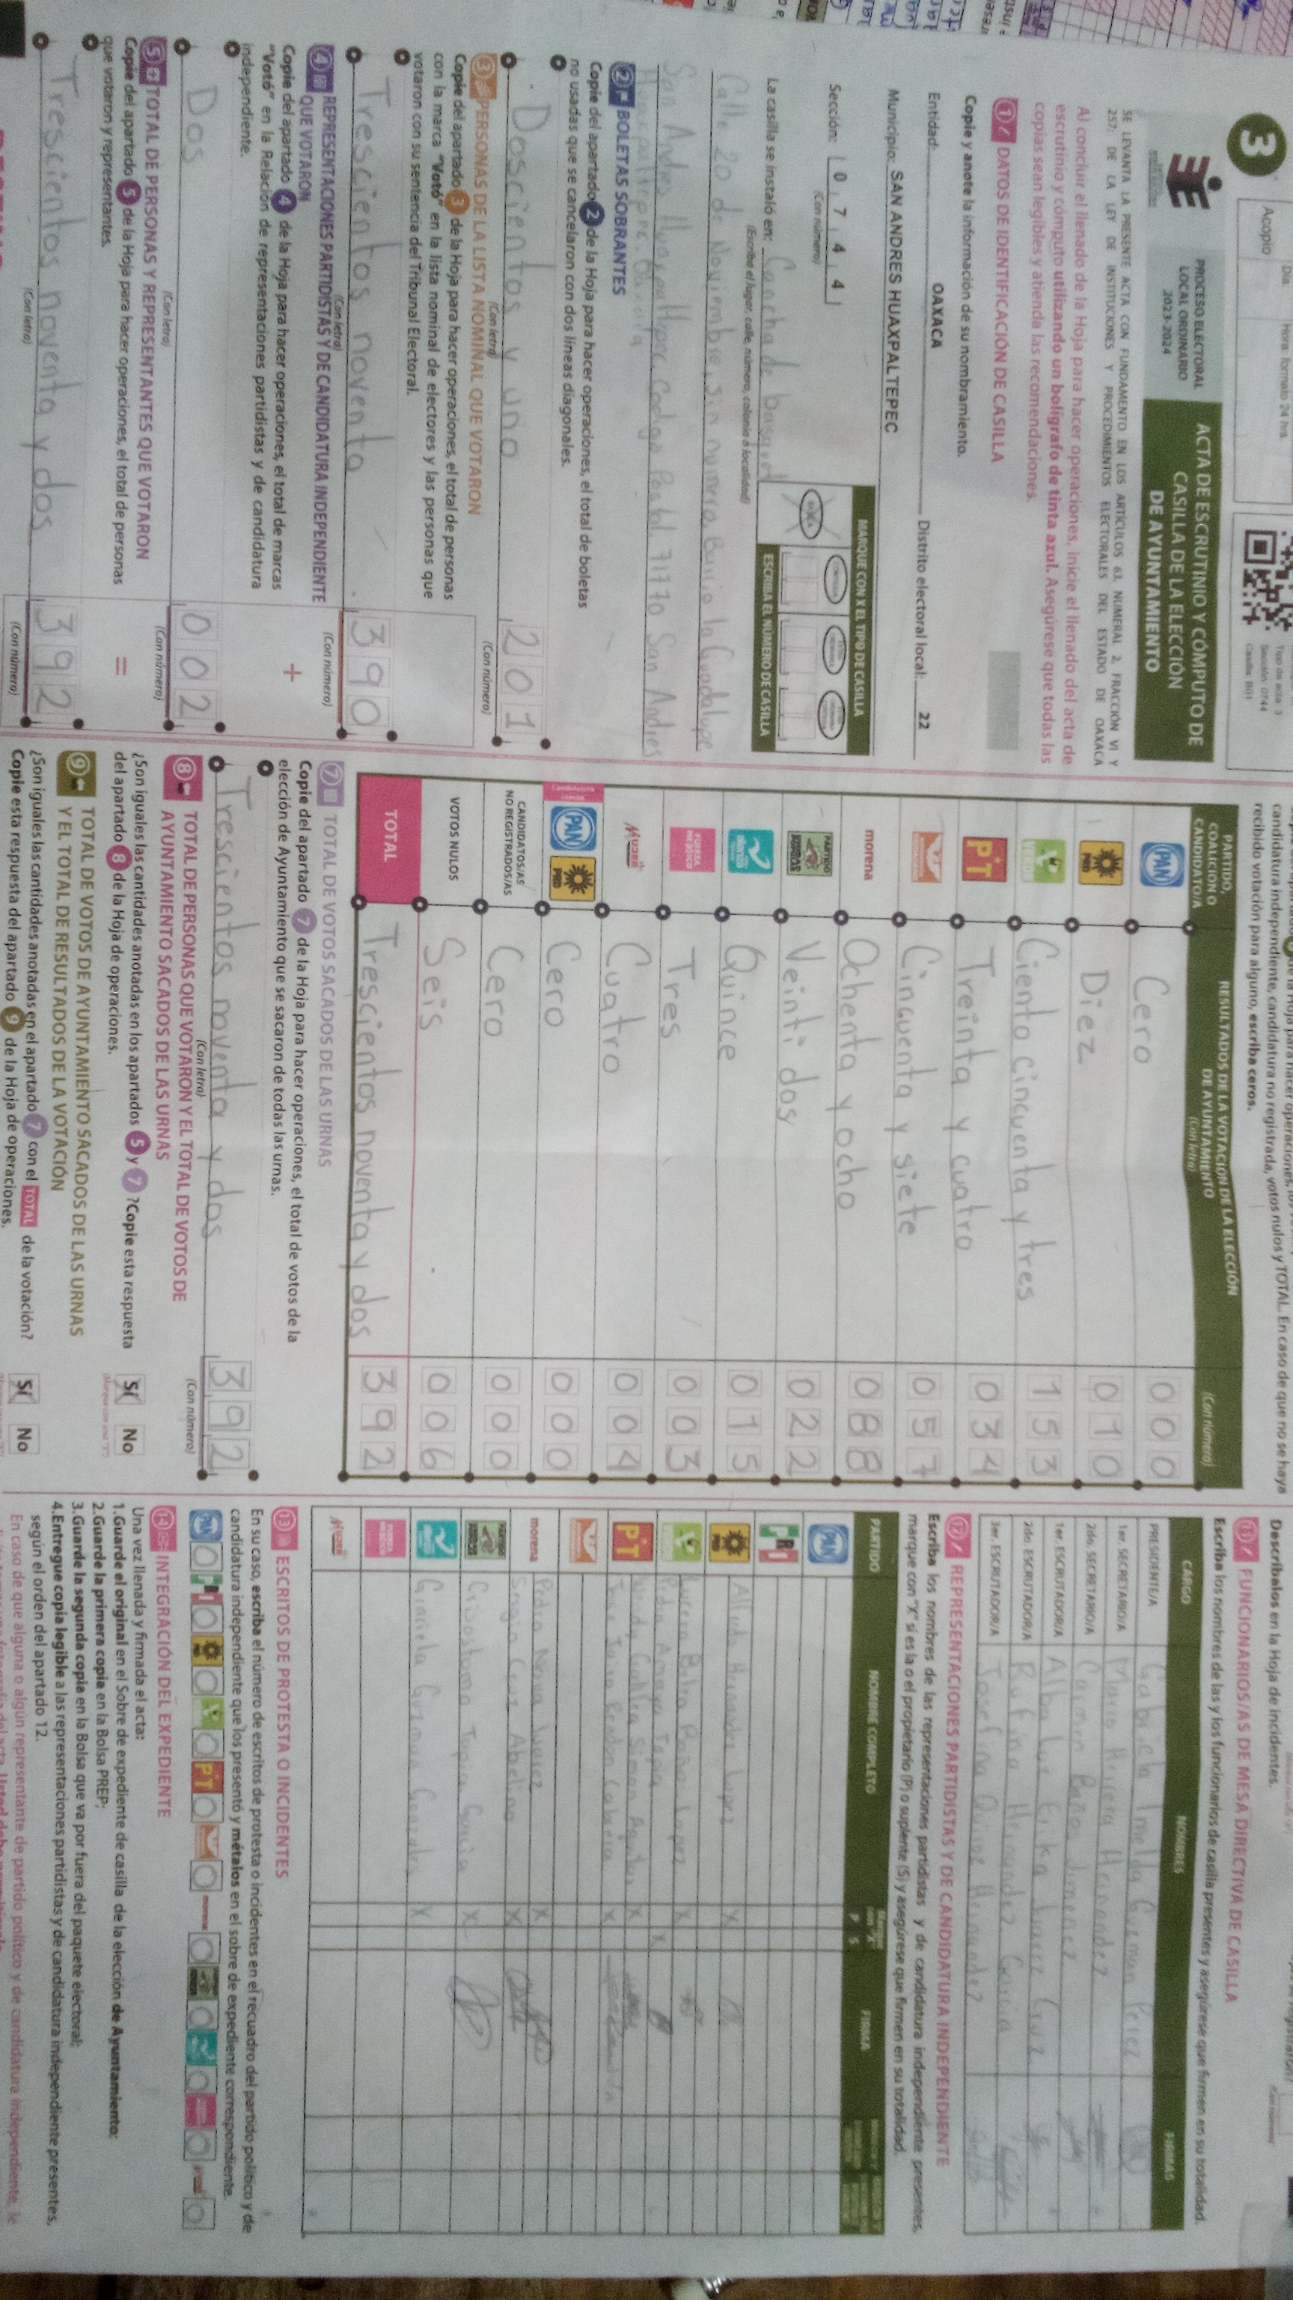 3
Acopio
Día:
Hora: formato 24 hrs.
Tipo de acta: 3
Sección: 0744
Casilla: B01
PROCESO ELECTORAL
LOCAL ORDINARIO
2023-2024
ACTA DE ESCRUTINIO Y CÓMPUTO DE
CASILLA DE LA ELECCIÓN
DE AYUNTAMIENTO
SE LEVANTA LA PRESENTE ACTA CON FUNDAMENTO EN LOS ARTÍCULOS 63, NUMERAL 2, FRACCIÓN VI Y
257, DE LA LEY DE INSTITUCIONES Y PROCEDIMIENTOS ELECTORALES DEL ESTADO DE OAXACA
Al concluir el llenado de la Hoja para hacer operaciones, inicie el llenado del acta de
escrutinio y cómputo utilizando un bolígrafo de tinta azul. Asegúrese que todas las
copias sean legibles y atienda las recomendaciones.
1 DATOS DE IDENTIFICACIÓN DE CASILLA
Copie y anote la información de su nombramiento.
Entidad: OAXACA Distrito electoral local: 22
Municipio: SAN ANDRES HUAXPALTEPEC
Sección: 0 7 4 4
(Con número)
MARQUE CON X EL TIPO DE CASILLA
ESCRIBA EL NÚMERO DE CASILLA
La casilla se instaló en: Cancha de basquet
(Escriba el lugar, calle, número, colonia o localidad)
Calle 20 de Noviembre, sin numero, Barrio la Guadalupe
San Andres Huaxpaltepec, Codigo Postal 71770 San Andres
Huaxpaltepec, Oaxaca
2 BOLETAS SOBRANTES
Copie del apartado 2 de la Hoja para hacer operaciones, el total de boletas
no usadas que se cancelaron con dos líneas diagonales.
Doscientos y uno 201
(Con letra) (Con número)
3 PERSONAS DE LA LISTA NOMINAL QUE VOTARON
Copie del apartado 3 de la Hoja para hacer operaciones, el total de personas
con la marca "Votó" en la lista nominal de electores y las personas que
votaron con su sentencia del Tribunal Electoral.
Trescientos noventa 390
(Con letra) (Con número)
4 REPRESENTACIONES PARTIDISTAS Y DE CANDIDATURA INDEPENDIENTE
QUE VOTARON
Copie del apartado 4 de la Hoja para hacer operaciones, el total de marcas
"Votó" en la Relación de representaciones partidistas y de candidatura
independiente.
+
Dos 002
(Con letra) (Con número)
5 TOTAL DE PERSONAS Y REPRESENTANTES QUE VOTARON
Copie del apartado 5 de la Hoja para hacer operaciones, el total de personas
que votaron y representantes.
=
Trescientos noventa y dos 392
(Con letra) (Con número)
candidatura independiente, candidatura no registrada, votos nulos y TOTAL. En caso de que no se haya
recibido votación para alguno, escriba ceros.
PARTIDO,
COALICIÓN O
CANDIDATO/A
RESULTADOS DE LA VOTACIÓN DE LA ELECCIÓN
DE AYUNTAMIENTO
(Con letra)
(Con número)
PAN Cero 000
PRD Diez 010
VERDE Ciento cincuenta y tres 153
PT Treinta y cuatro 034
Cincuenta y siete 057
morena Ochenta y ocho 088
Veinti dos 022
Quince 015
FUERZA MÉXICO Tres 003
MUJER Cuatro 004
PAN PRD Cero 000
CANDIDATOS/AS
NO REGISTRADOS/AS Cero 000
VOTOS NULOS Seis 006
TOTAL Trescientos noventa y dos 392
7 TOTAL DE VOTOS SACADOS DE LAS URNAS
Copie del apartado 7 de la Hoja para hacer operaciones, el total de votos de la
elección de Ayuntamiento que se sacaron de todas las urnas.
Trescientos noventa y dos 392
(Con letra) (Con número)
8 TOTAL DE PERSONAS QUE VOTARON Y EL TOTAL DE VOTOS DE
AYUNTAMIENTO SACADOS DE LAS URNAS
¿Son iguales las cantidades anotadas en los apartados 5 y 7 ? Copie esta respuesta
del apartado 8 de la Hoja de operaciones.
Sí No
9 TOTAL DE VOTOS DE AYUNTAMIENTO SACADOS DE LAS URNAS
Y EL TOTAL DE RESULTADOS DE LA VOTACIÓN
¿Son iguales las cantidades anotadas en el apartado 7 con el TOTAL de la votación?
Copie esta respuesta del apartado 9 de la Hoja de operaciones.
Sí No
Descríbalos en la Hoja de incidentes.
11 FUNCIONARIOS/AS DE MESA DIRECTIVA DE CASILLA
Escriba los nombres de las y los funcionarios de casilla presentes y asegúrese que firmen en su totalidad.
CARGO NOMBRES FIRMAS
PRESIDENTE/A Gabriela Imelda Guzman Perez
1er. SECRETARIO/A Mario Herrera Hernandez
2do. SECRETARIO/A Carmen Baños Jimenez
1er. ESCRUTADOR/A Alba Luz Erika Lopez Cruz
2do. ESCRUTADOR/A Rufina Hernandez Garcia
3er. ESCRUTADOR/A Josefina Quiroz Hernandez
12 REPRESENTACIONES PARTIDISTAS Y DE CANDIDATURA INDEPENDIENTE
Escriba los nombres de las representaciones partidistas y de candidatura independiente presentes,
marque con "X" si es la o el propietario (P) o suplente (S) y asegúrese que firmen en su totalidad.
PARTIDO NOMBRE COMPLETO P S FIRMA
PAN
PRI
PRD Hernandez Lopez X
PT X
X
morena Pedro X
X
Crisostomo Tapia Garcia X
X
MUJER
13 ESCRITOS DE PROTESTA O INCIDENTES
En su caso, escriba el número de escritos de protesta o incidentes en el recuadro del partido político y de
candidatura independiente que los presentó y métalos en el sobre de expediente correspondiente.
PAN PRI PRD PT morena
14 INTEGRACIÓN DEL EXPEDIENTE
Una vez llenada y firmada el acta:
1.Guarde el original en el Sobre de expediente de casilla de la elección de Ayuntamiento;
2.Guarde la primera copia en la Bolsa PREP;
3.Guarde la segunda copia en la Bolsa que va por fuera del paquete electoral;
4.Entregue copia legible a las representaciones partidistas y de candidatura independiente presentes,
según el orden del apartado 12.
En caso de que alguna o algún representante de partido político y de candidatura independiente, le